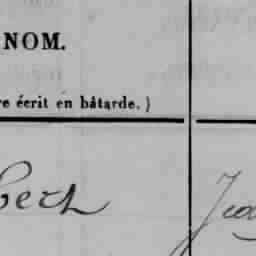 NOM.
re écrit en bâtarde.)
bert